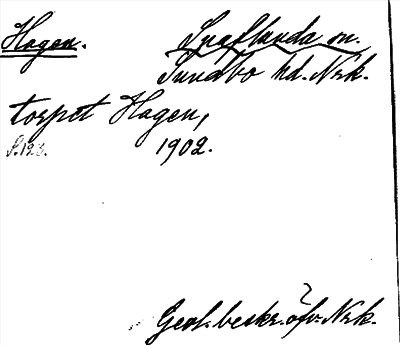 Hagen. Snaflunda sn.
Sundbo hd. Nrk.
torpet Hagen,
S. 123. 1902.
Geol. beskr. öfv. Nrk.